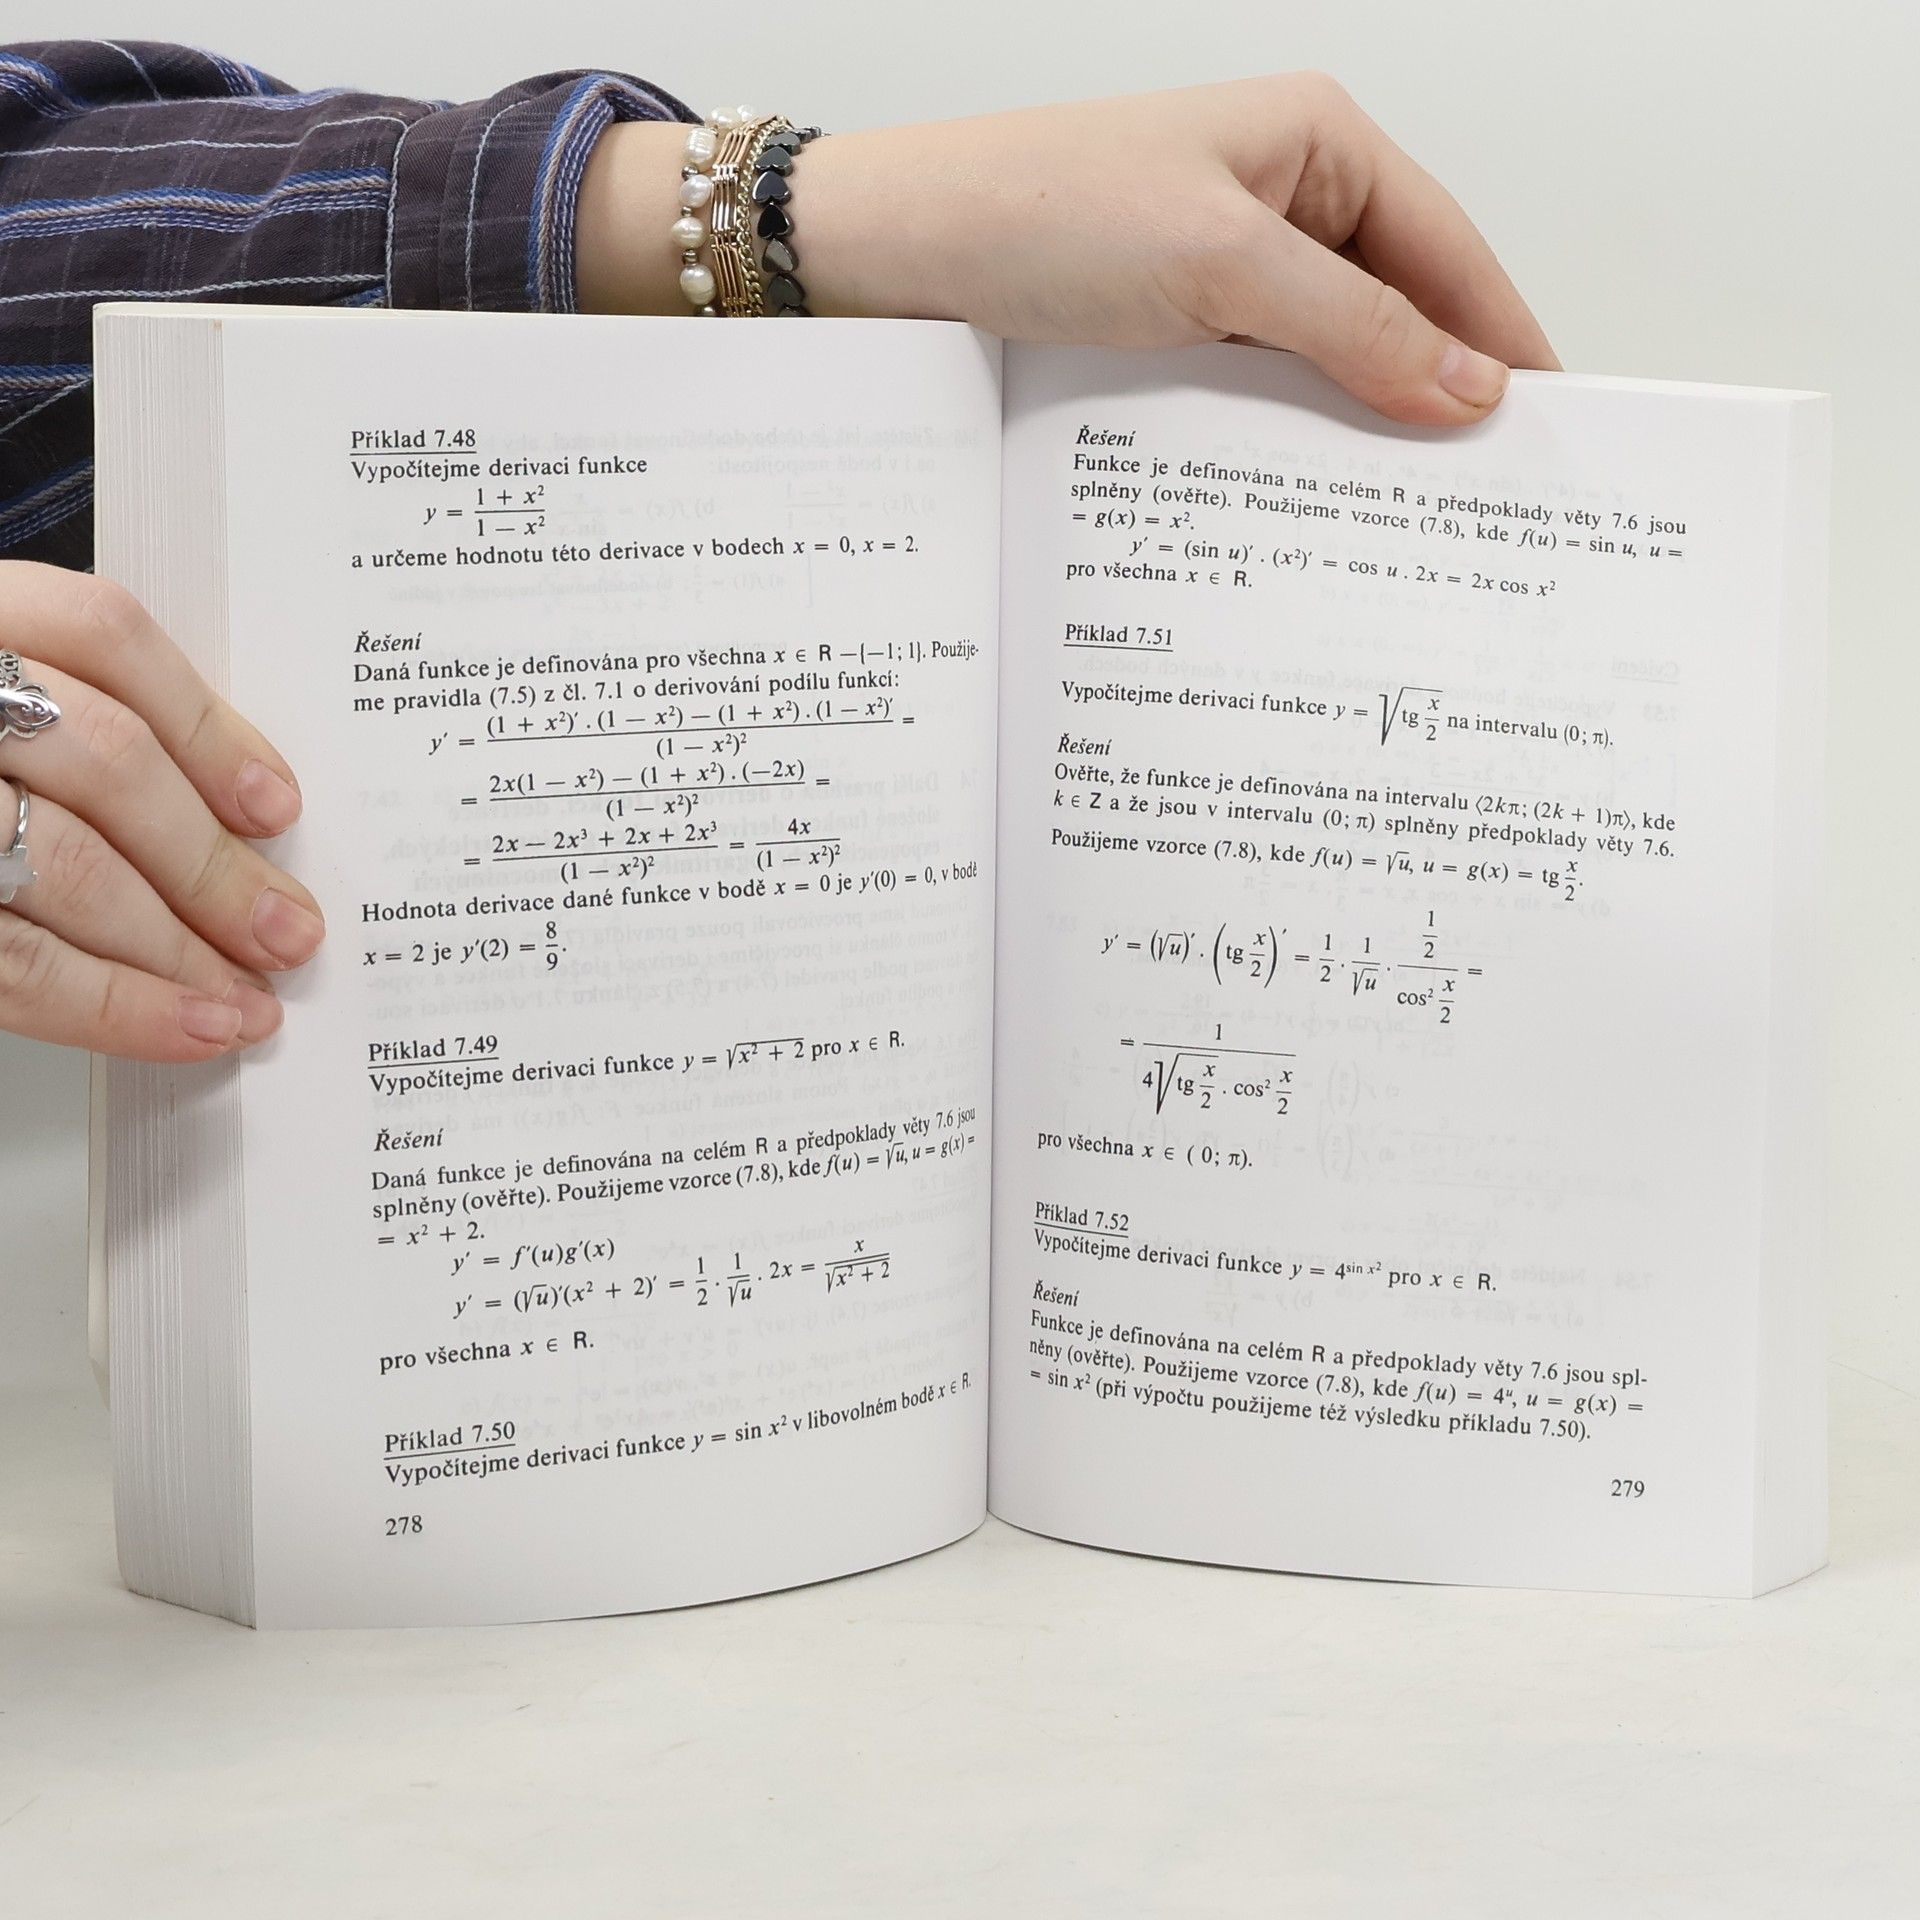 Příklad 7.48
Vypočítejme derivaci funkce
y = (1 + x²)/(1 — x²)
a určeme hodnotu této derivace v bodech x = 0, x = 2.
Řešení
Daná funkce je definována pro všechna x ∈ R —{—1; 1}. Použije-
me pravidla (7.5) z čl. 7.1 o derivování podílu funkcí:
y′ = ((1 + x²)′ . (1 — x²) — (1 + x²) . (1 — x²)′)/(1 — x²)² =
= (2x(1 — x²) — (1 + x²) . (—2x))/(1 — x²)² =
= (2x — 2x³ + 2x + 2x³)/(1 — x²)² = 4x/(1 — x²)²
Hodnota derivace dané funkce v bodě x = 0 je y′(0) = 0, v bodě
x = 2 je y′(2) = 8/9.
Příklad 7.49
Vypočítejme derivaci funkce y = √(x² + 2) pro x ∈ R.
Řešení
Daná funkce je definována na celém R a předpoklady věty 7.6 jsou
splněny (ověřte). Použijeme vzorce (7.8), kde f(u) = √u, u = g(x) =
= x² + 2.
y′ = f′(u)g′(x)
y′ = (√u)′(x² + 2)′ = 1/2 . 1/√u . 2x = x/√(x² + 2)
pro všechna x ∈ R.
Příklad 7.50
Vypočítejme derivaci funkce y = sin x² v libovolném bodě x ∈ R.
278
Řešení
Funkce je definována na celém R a předpoklady věty 7.6 jsou
splněny (ověřte). Použijeme vzorce (7.8), kde f(u) = sin u, u =
= g(x) = x².
y′ = (sin u)′ . (x²)′ = cos u . 2x = 2x cos x²
pro všechna x ∈ R.
Příklad 7.51
Vypočítejme derivaci funkce y = √(tg x/2) na intervalu (0; π).
Řešení
Ověřte, že funkce je definována na intervalu ⟨2kπ; (2k + 1)π), kde
k ∈ Z a že jsou v intervalu (0; π) splněny předpoklady věty 7.6.
Použijeme vzorce (7.8), kde f(u) = √u, u = g(x) = tg x/2.
y′ = (√u)′ . (tg x/2)′ = 1/2 . 1/√u . (1/2)/(cos² x/2) =
= 1/(4√(tg x/2) . cos² x/2)
pro všechna x ∈ ( 0; π).
Příklad 7.52
Vypočítejme derivaci funkce y = 4^(sin x²) pro x ∈ R.
Řešení
Funkce je definována na celém R a předpoklady věty 7.6 jsou spl-
něny (ověřte). Použijeme vzorce (7.8), kde f(u) = 4ᵘ, u = g(x) =
= sin x² (při výpočtu použijeme též výsledku příkladu 7.50).
279